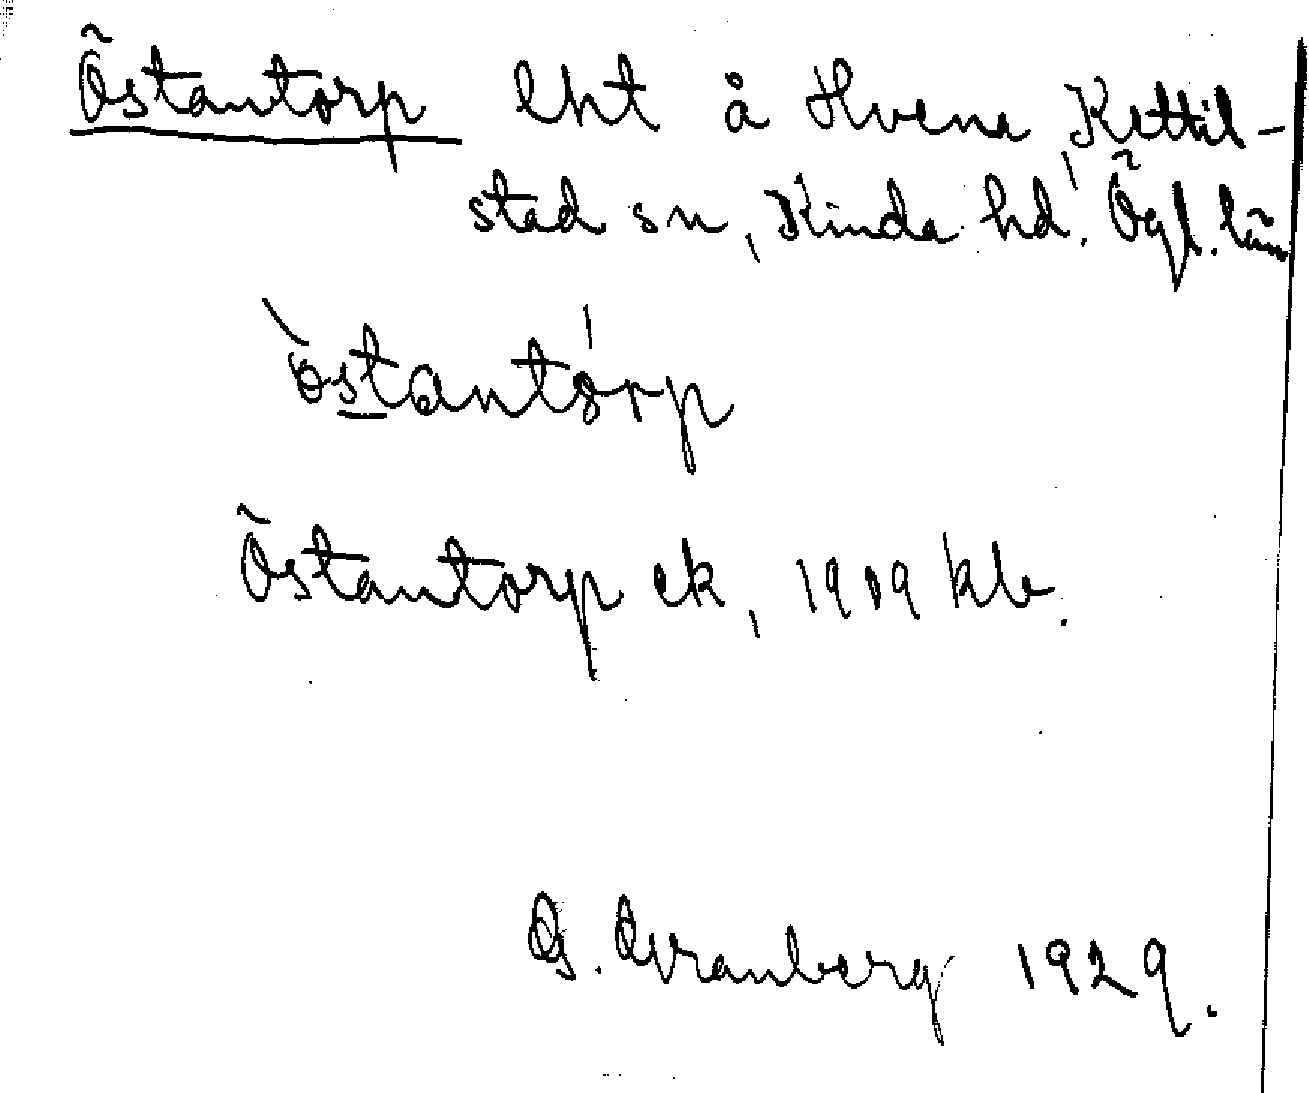 Östantorp lht å Hvena Kettil-
stad sn, Kinda hd, Ögl. län
östantorp
Östantorp ek, 1909 klb.
G. Granberg 1929.